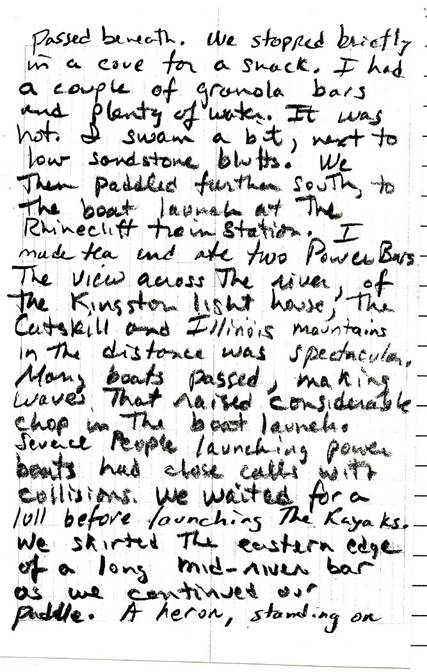 passed beneath. We stopped briefly
in a cove for a snack. I had
a couple of granola bars
and plenty of water. It was
hot. I swam a bit, next to
low sandstone bluffs. We
then paddled further south, to
the boat launch at the
Rhinecliff train station. I
made tea and ate two Power Bars
The view across the river, of
the Kingston light house, the
Catskill and Illinois mountains
in the distance was spectacular.
Many boats passed, making
waves that raised considerable
chop in the boat launch.
Several people launching power
boats had close calls with
collisions. We waited for a
lull before launching the Kayaks.
We skirted the eastern edge
of a long mid-river bar
as we continued our
paddle. A heron, standing on